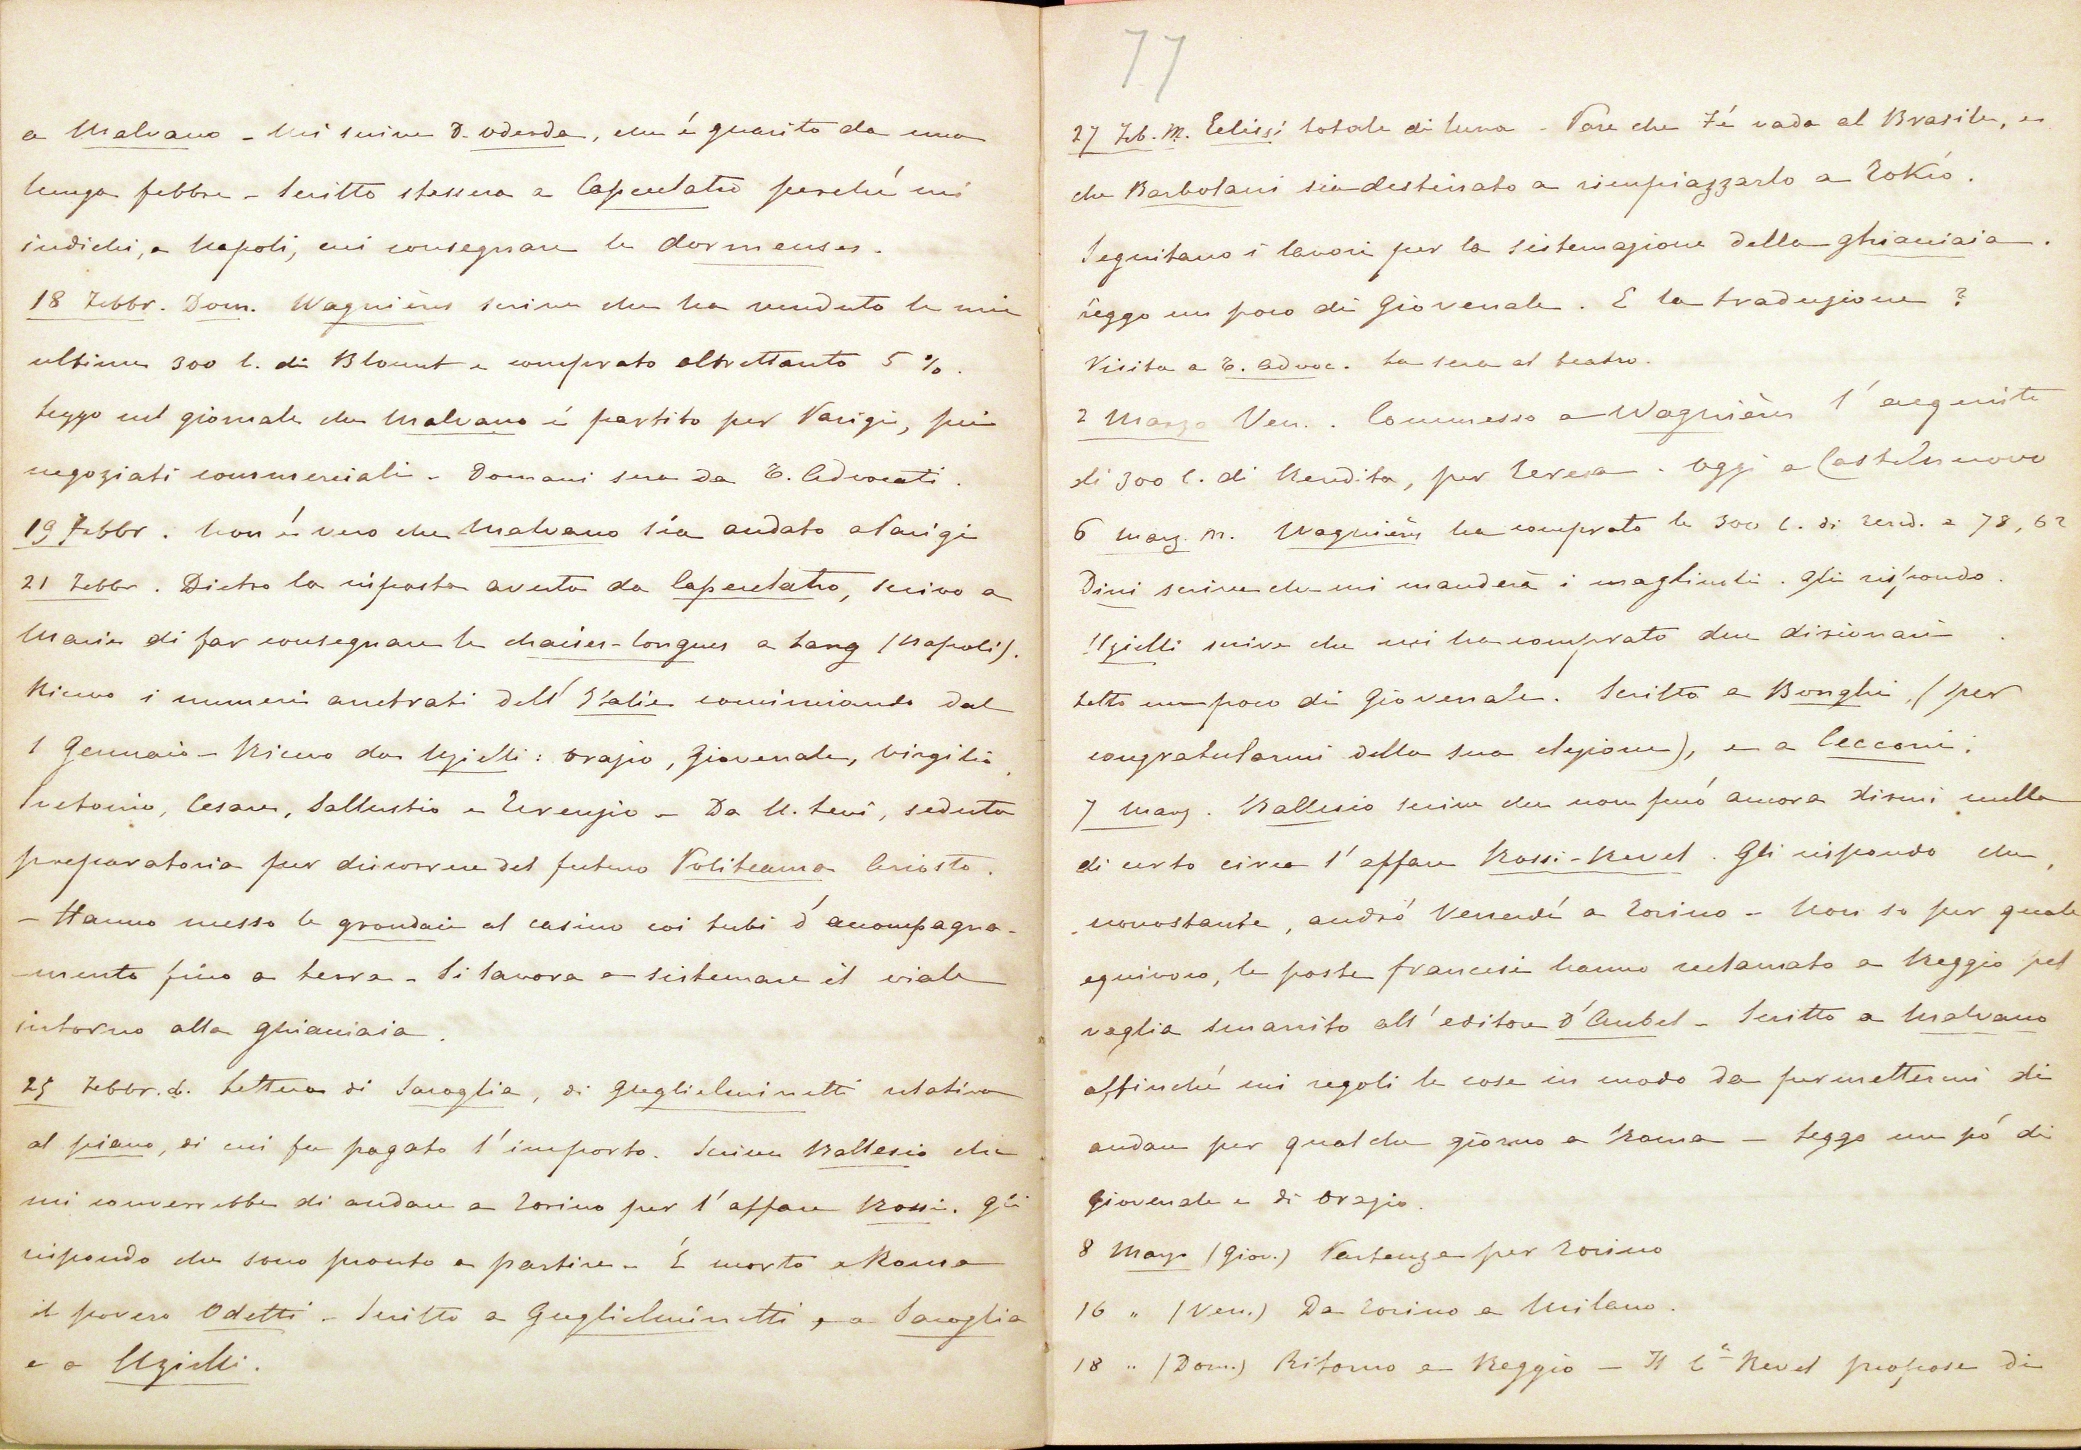 a Malvano - Mi scrive D. Oderda, che é guarito da una
lunga febbre - Scritto stassera a Capecelatro perché mi
indichi, a Napoli, cui consegnare le dormeuses.
18 Febbr. Dom. Wagnières scrive che ha venduto le mie
ultime 300 l. di Blount e comprato altrettanto 5 %.
Leggo nel giornale che Malvano é partito per Parigi, pei
negoziati commerciali - Domani sera da T. Advocati.
19 Febbr. Non é vero che Malvano sia andato a Parigi
21 Febbr. Dietro la risposta avuta da Capecelatro, scrivo a
Maria di far consegnare le chaises-longues a Lang (Napoli).
Ricevo i numeri arretrati dell' Italie cominciando dal
1 Gennaio - Ricevo da Uzielli: Orazio, Giovenale, Virgilio,
Svetonio, Cesare, Sallustio e Terenzio - Da U. Levi, seduta
preparatoria per discorrere del futuro Politeama Ariosto.
- Hanno messo le grondaie al casino coi tubi d'accompagna-
-mento fino a terra - Si lavora a sistemare il viale
intorno alla ghiacciaia.
25 Febbr. d. Lettera di Saroglia, di Guglielminetti relativa
al piano, di cui fu pagato l'importo. Scrive Ballesio che
mi converrebbe di andare a Torino per l'affare Rossi. Gli
rispondo che sono pronto a partire - É morto a Roma
il povero Odetti - Scritto a Guglielminetti, e a Saroglia
e a Uzielli.
77
27 Feb. M. Eclissi totale di luna - Pare che Fé vada al Brasile, e
che Barbolani sia destinato a rimpiazzarlo a Tokió.
Seguitano i lavori per la sistemazione della ghiacciaia.
Leggo un poco di Giovenale. E la traduzione?
Visita a T. Advoc. La sera al teatro.
2 Marzo Ven. Commesso a Wagnières l'acquisto
di 300 l. di Rendita, per Teresa - Oggi a Castelnuovo
6 Marz. M. Wagnières ha comprato le 300 l. di rend. a 78,62
Dini scrive che mi manderà i magliuoli. Gli rispondo.
Uzielli scrive che mi ha comprato due dizionari.
Letto un poco di Giovenale. Scritto a Bonghi, (per
congratularmi della sua elezione), e a Cecconi.
7 Marz. Ballesio scrive che non può ancora dirmi nulla
di certo circa l'affare Rossi-Revel. Gli rispondo che,
nonostante, andró Venerdí a Torino - Non so per quale
equivoco, le poste francesi hanno reclamato a Reggio pel
vaglia smarrito all'editore d'Aubel - Scritto a Malvano
affinché mi regoli le cose in modo da permettermi di
andare per qualche giorno a Roma - Leggo un pó di
Giovenale e di Orazio.
8 Marzo (Giov.) Partenza per Torino
16 " (Ven.) Da Torino a Milano.
18 " (Dom.) Ritorno a Reggio - Il Revel propose di